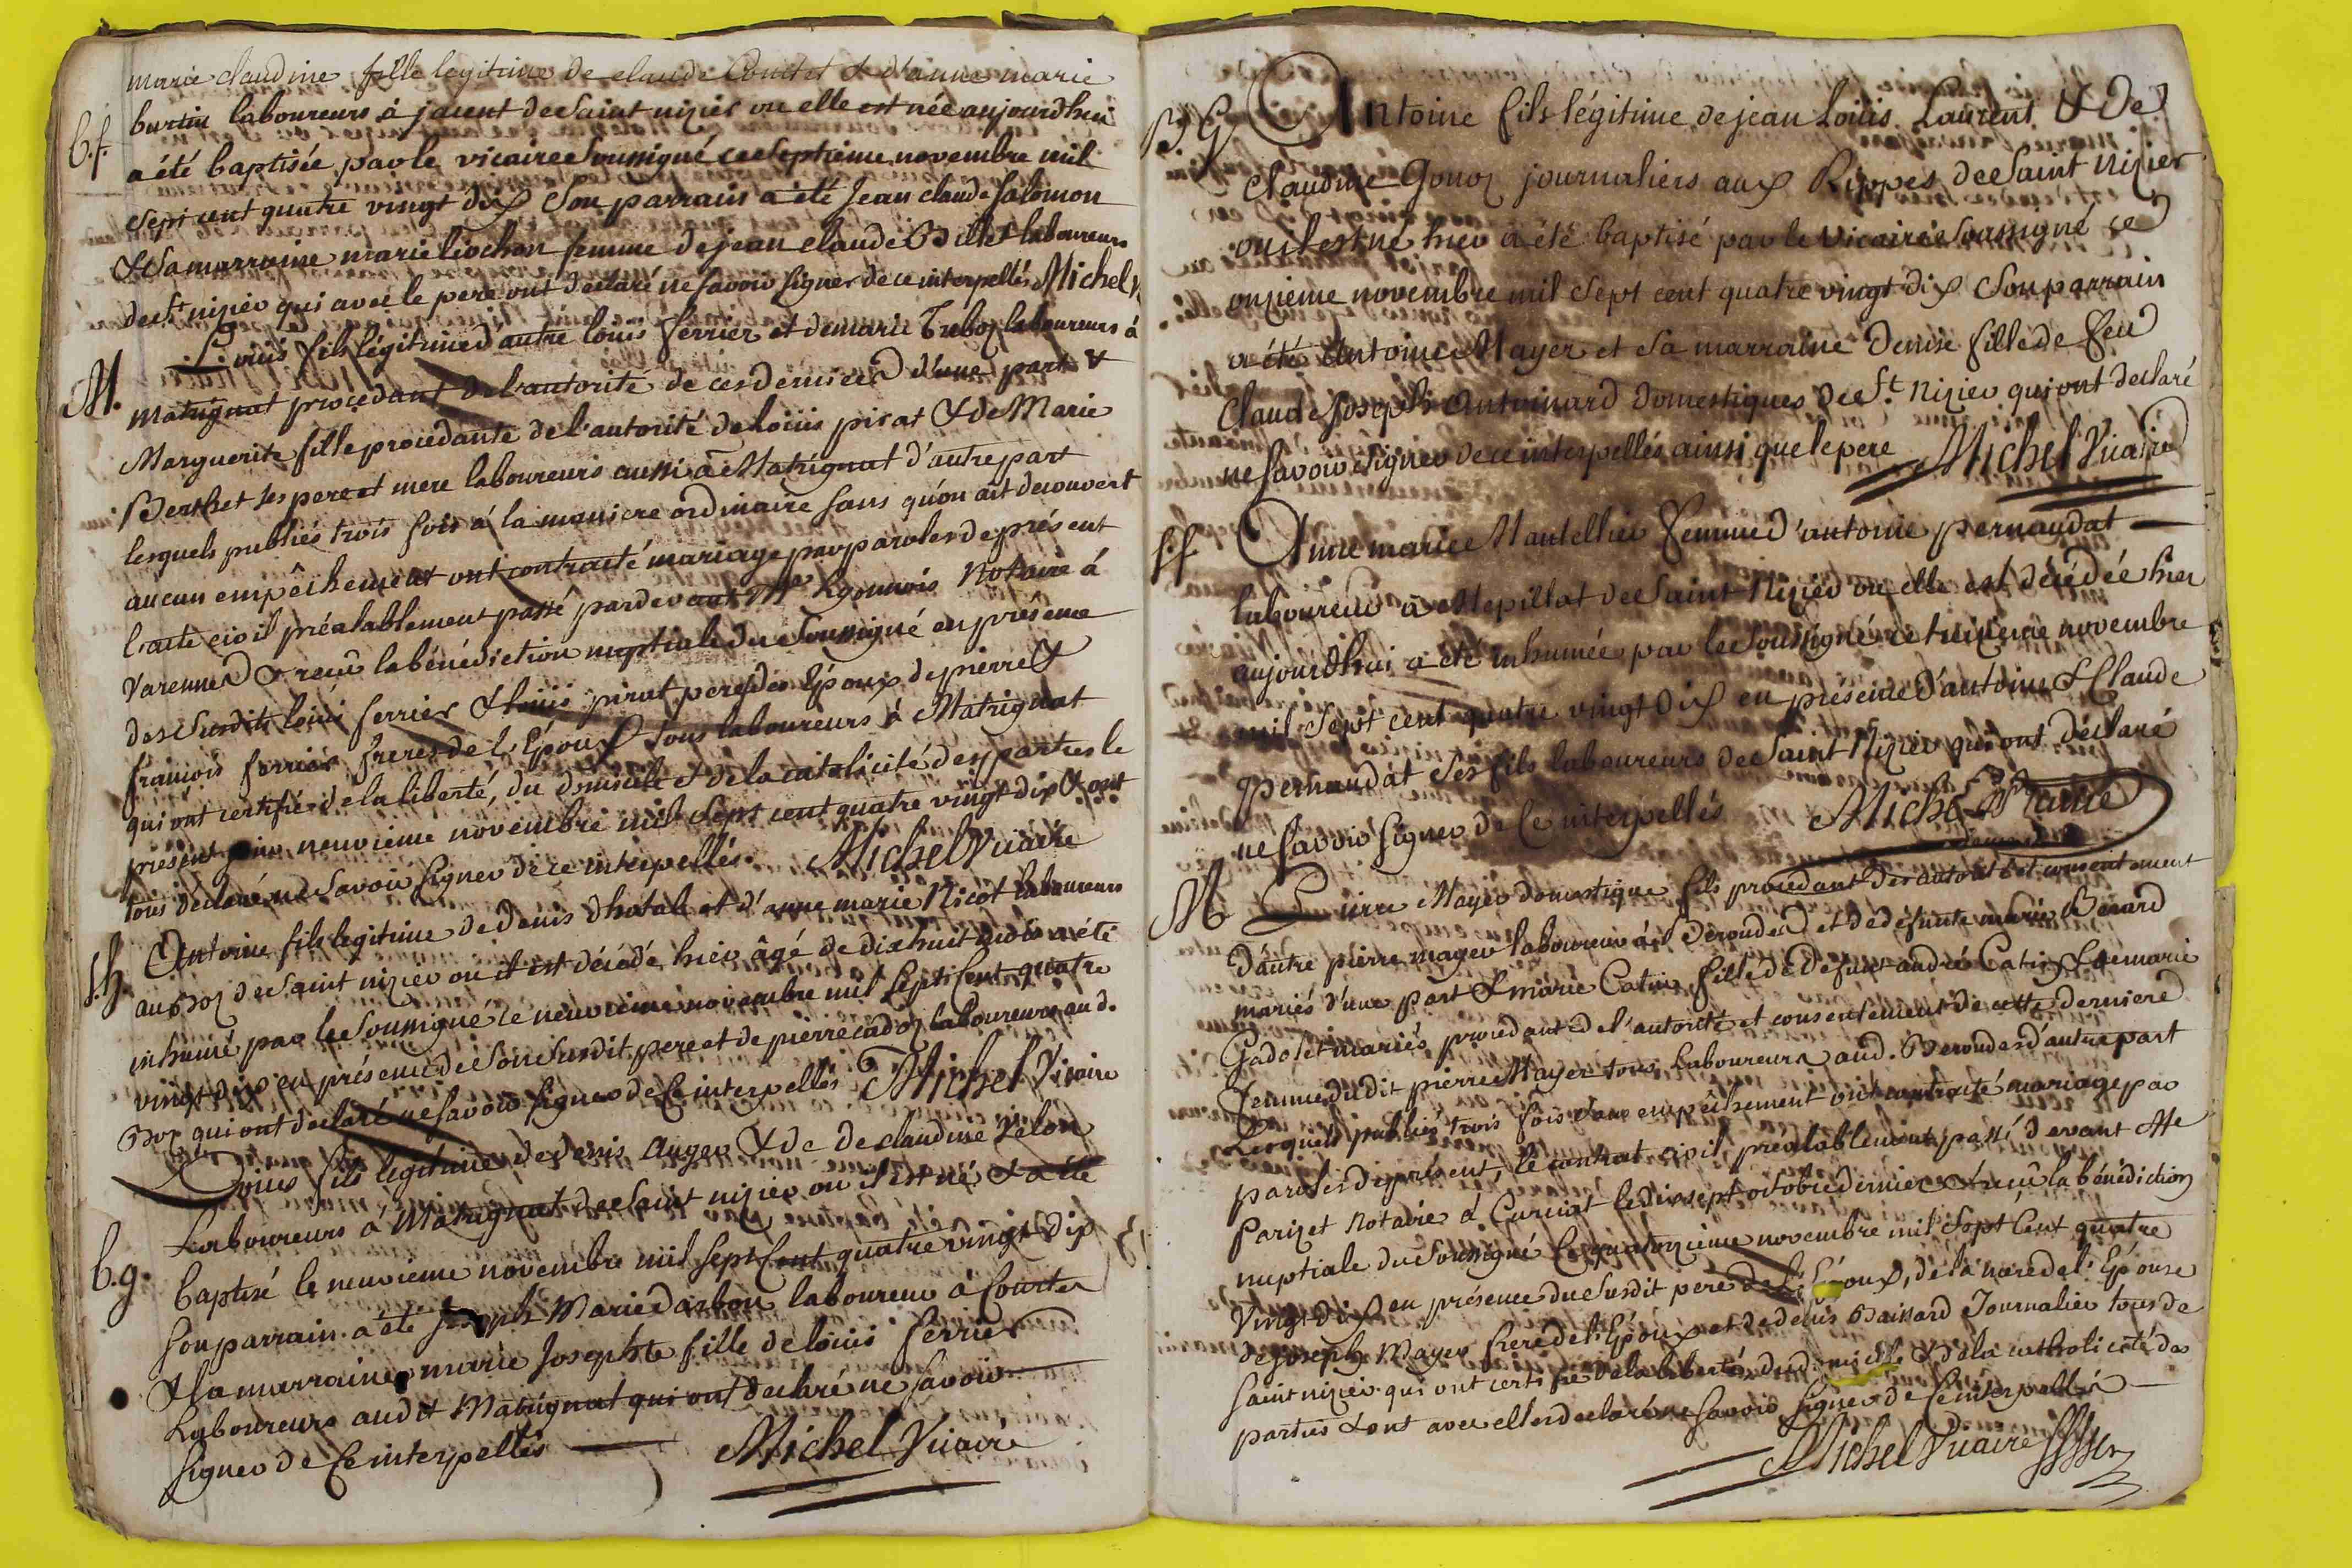 marie claudine fille legitime de claude Contet & d'anne marie
b.f. burtin laboureurs à jacent de Saint nizier ou elle est née aujourdhui
a été baptisée par le vicaire Soussigné ce Septième novembre mil
Sept cent quatre vingt dix Son parrain a été Jean claude Salomon
& Sa marraine marie liochon femme de jean claude Billet laboureurs
de St nizier qui avec le pere ont déclaré ne Savoir Signer de ce interpellés Michel
M. Louis fils légitime d'autre louis ferrier et de marie Treboz laboureurs à
Matrignat procédant de l'autorité de ces derniers d'une part &
Marguerite fille procédante de l'autorité de loüis pirat & de Marie
Berthet ses pere et mere laboureurs aussi à Matrignat d'autre part
lesquels publiés trois fois à la maniere ordinaire sans qu'on ait decouvert
aucun empêchement ont contracté mariage par paroles de présent
l'acte civil préalablement passé pardevant Me Lyonnois Notaire à
Varennes & reçu la bénédiction nuptiale du Soussigné en présence
des Susdits loüis ferrier & loüis pirat peres des Epoux de pierre &
françois ferrier freres de l'Epoux tous laboureurs à Matrignat
qui ont certifié de la liberté, du domicile & de la catolicité des parties le
présent neuvieme novembre mil Sept cent quatre vingt dix & ont
tous declaré ne Savoir Signer de ce interpellés. Michel Vicaire
s.h. Antoine fils legitime de denis Chatal et d'anne marie Nicot laboureurs
au Boz de Saint nizier ou il est décédé hier âgé de dix huit mois a été
inhumé par le Soussigné le neuvieme novembre mil Sept Cent quatre
vingt dix en présence de Son Susdit pere et de pierre cadoz laboureurs aud.
Boz qui ont declaré ne Savoir Signer de Ce interpellés Michel Vicaire
Loüis fils legitime de denis Auger & de de claudine Velon
b.g. Laboureurs à Matrignat de Saint nizier ou il est né & a été
baptisé le neuvieme novembre mil Sept Cent quatre vingt dix
Son parrain a été Joseph Marie darbon laboureur à Courtes
& Sa marraine marie Josephte fille de loüis ferrier
Laboureurs audit Matrignat qui ont declaré ne Savoir
Signer de Ce interpellés Michel Vicaire
B.G. Antoine fils légitime de jean Loüis Laurent & de
Claudine Gonoz journaliers aux Rippes de Saint Nizier
ou il est né hier a été baptisé par le Vicaire Soussigné ce
onzieme novembre mil Sept cent quatre vingt dix Son parrain
a été Antoine Mayer et Sa marraine Denise fille de feu
Claude Joseph Antoinard Domestiques de St. Nizier qui ont declaré
ne Savoir Signer de ce interpellés ainsi que le pere Michel Vicaire
s.f. Anne marie Mantellier femme d'antoine pernaudat
laboureur à Mepillat de Saint Nizier ou elle est décédée hier
aujourdhui a été inhumée par le Soussigné ce treizieme novembre
mil Sept cent quatre vingt Dix en présence d'antoine & Claude
pernaudat Ses fils laboureurs de Saint Nizier qui ont déclaré
ne Savoir Signer de Ce interpellés Michel Vicaire
M Pierre Mayer domestique fils procédant des autorité et consentement
d'autre pierre mayer laboureur à Derondes et de défunte marie Benard
mariés d'une part & marie Catin fille de Défunt andré Catin & de marie
Gadolet mariés procédante de l'autorité et consentement de cette derniere
femme dudit pierre Mayer tous Laboureurs aud. Derondes d'autre part
Lesquels publiés trois fois Sans empêchement ont contracté mariage par
paroles de présent, le contrat civil préalablement passé devant Me
Parizet Notaire à Curciat le dixsept octobre dernier & reçû la bénédiction
nuptiale du Soussigné Le quatorzieme novembre mil Sept Cent quatre
Vingt dix en présence du Susdit pere de l'Epoux, de la mere de l'Epouse
de Joseph Mayer frere de l'Epoux et de denis Baissard Journalier tous de
Saint nizier qui ont certifié de la liberté, du domicile & de la catholicité des
parties & ont avec elles declaré ne Savoir Signer de Ce interpellés
Michel Vicaire